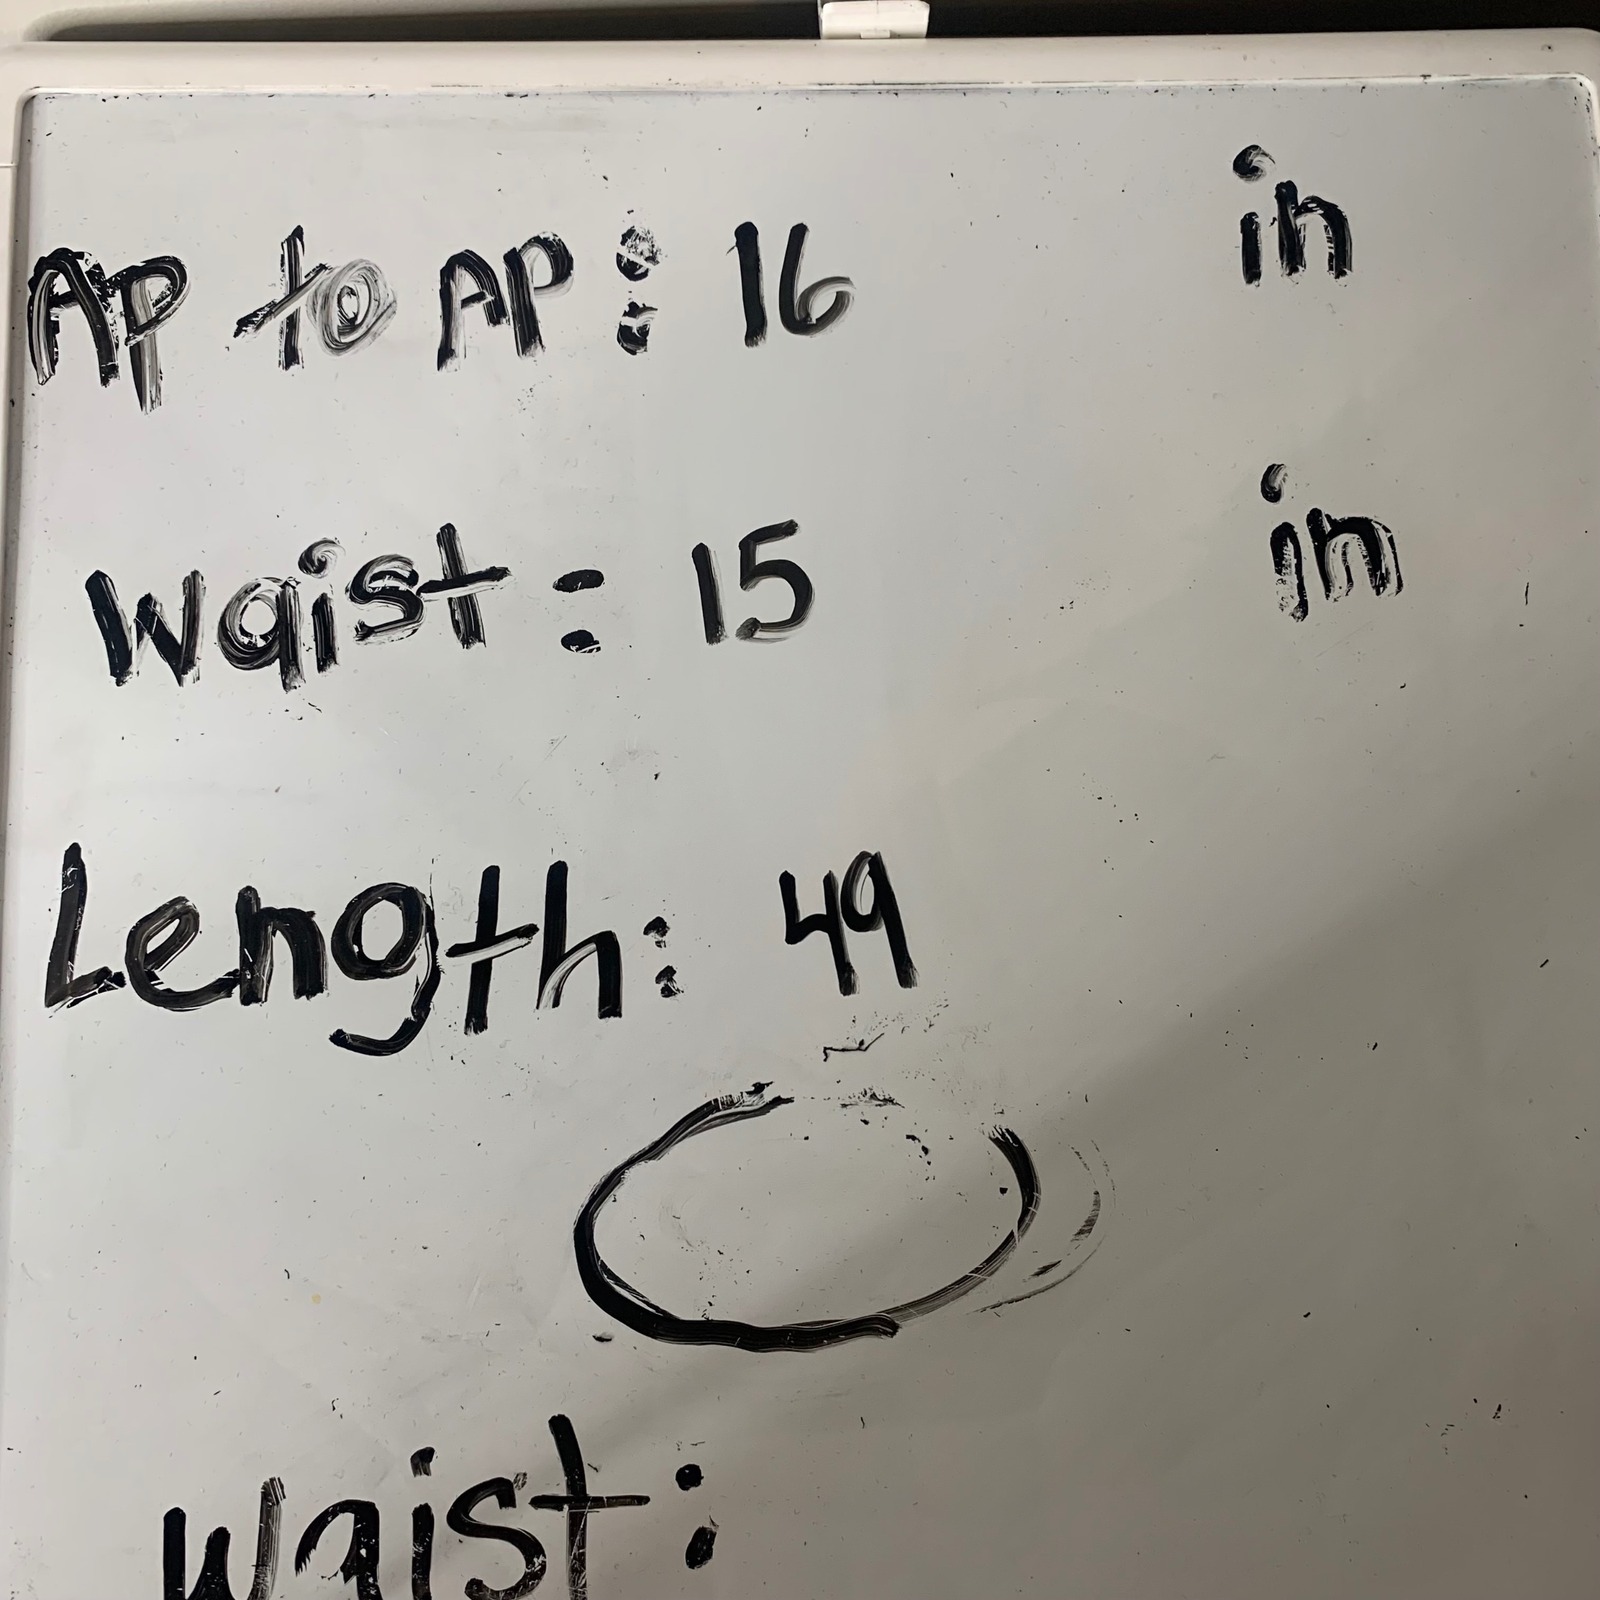 AP to AP: 16 in
Waist: 15 in
Length: 49
Waist: